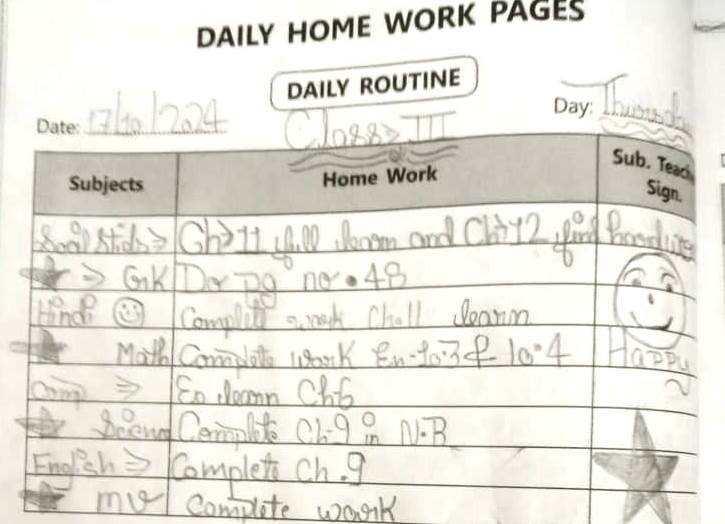 DAILY HOME WORK PAGES
DAILY ROUTINE
Date: 17/10/2024 Day: Thursda
Class > III
Subjects Home Work Sub. Teach Sign.
Ch > 11 full learn and Ch > 12 find hard
⇒ GK Do pg no. 48
Hindi Complete work Ch 11 learn
Math Complete work Ex-10.3 & 10.4 Happy
Comp ⇒ Ex learn Ch 6
Science Complete Ch-9 in N.B
English ⇒ Complete Ch. 9
mv Complete work